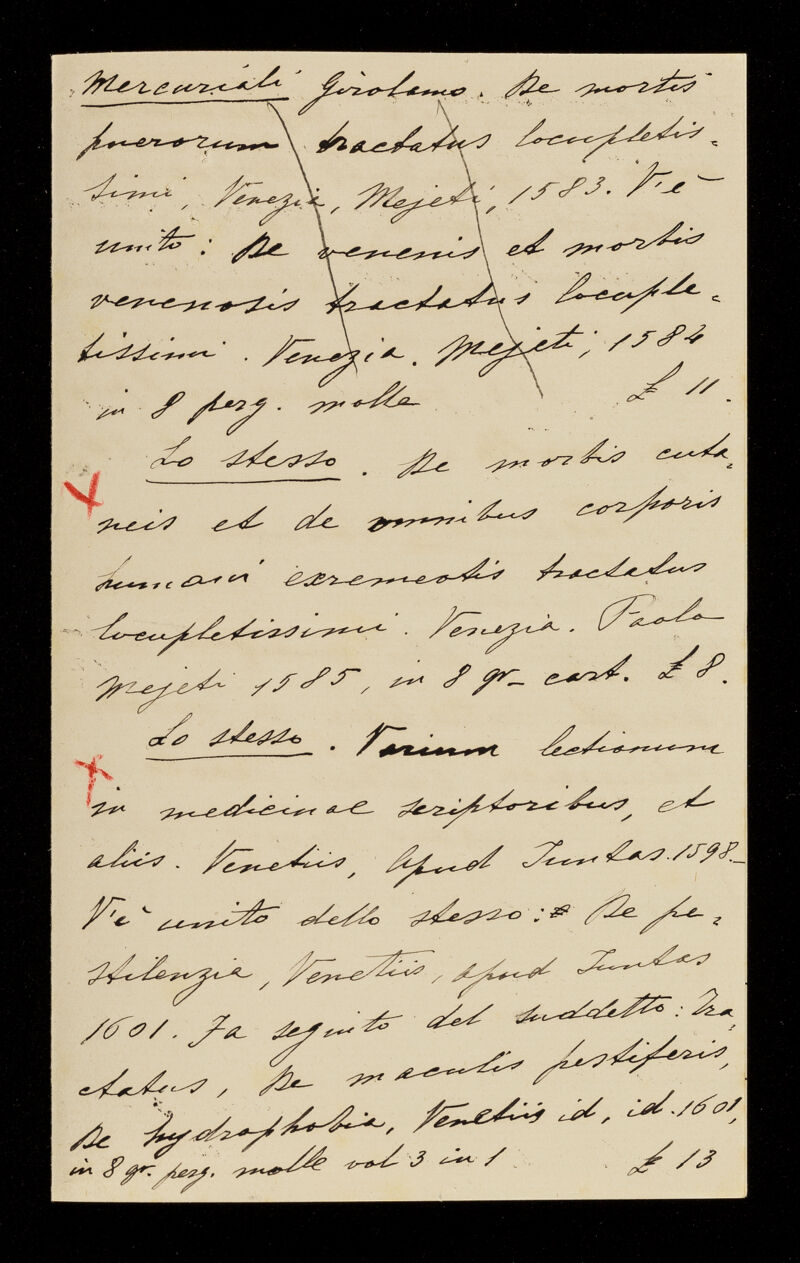 Mercuriali Girolamo. De mortis
puerorum tractatus locupletis=
simi, Venezia, Mejeti, 1583. V'è
unito: De venenis et morbis
venenosis tractatus locuple=
tissimi. Venezia. Mejeti, 1584
in 8 perg. molle £ 11.
Lo stesso. De morbis cuta=
neis et de omnibus corporis
humani exrementis tractatus
locupletissimi. Venezia. Paolo
Mejeti 1585, in 8 gr- cart. £ 8.
Lo stesso. Varium lectionum
in medicinae scriptoribus, et
aliis. Venetiis, apud Juntas. 1598.-
V'è unito dello stesso: De pe=
stilenzia, Venetiis, apud Juntas
1601. Fa seguito del suddetto: Tra=
ctatus, De maculis pestiferis,
De hydrophobia, Venetiis id, id. 1601,
in 8 gr. perg. molle vol 3 in 1 £ 13